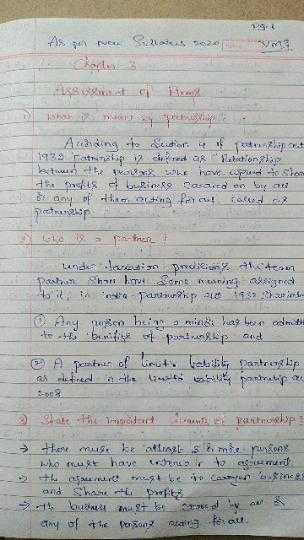 Pg-1
As per new Syllabus 2020 VMJ
Chapter 3
Assessment of Firms
1) What is mean by partnership?
According to Section 4 of partnership act
1932 Partnership is defined as "Relationship
between the persons who have agreed to share
the profits of business carried on by all
or any of them acting for all called as
partnership
2) Who is a partner?
Under taxation provisions the term
partner shall have same meaning assigned
to it, in India partnership act 1932
① Any person being a minor has been admitted
to the benifits of partnership and
② A partner of limit liability partnership
as defined in the limit liability partnership act
2008
3) State the important elements of partnership?
→ there must be atleast 2 or more persons
who must have enterence to agreement
→ the agreement must be to carryon business
and share the profits
→ th business must be carried by all &
any of the persons acting for all.